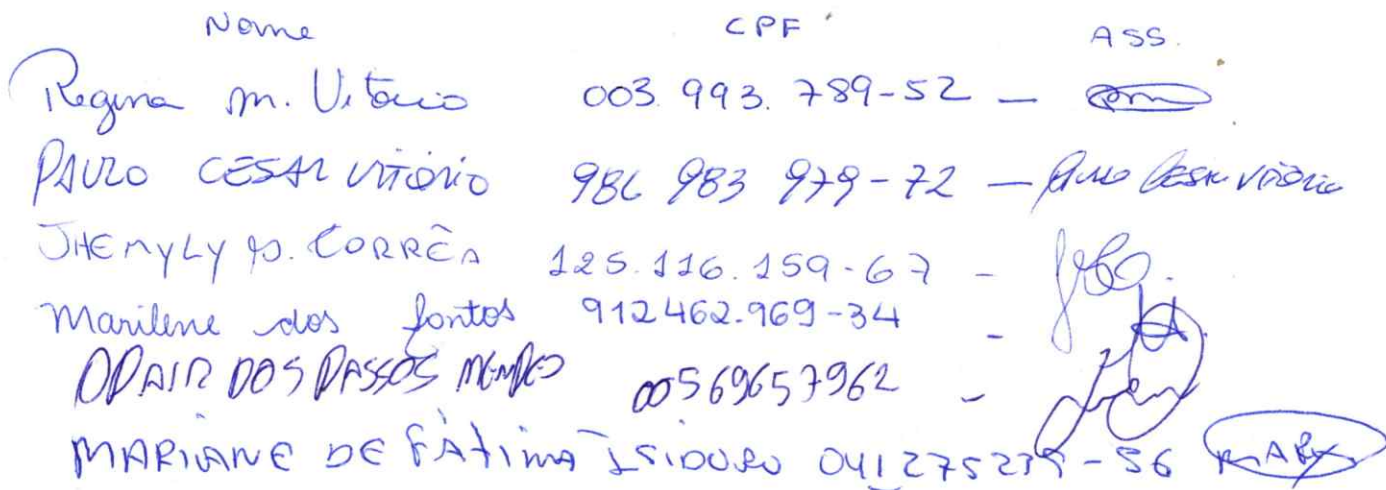 Nome CPF ASS.
Regina M. Vitorio 003.993.789-52 -
PAULO CESAR VITÓRIO 986 983 979-72 - Paulo Cesar Vitório
JHEMYLY D. CORRÊA 125.116.159-67 -
Marilene dos Santos 912462.969-34 -
ODAIR DOS PASSOS MENDES 00569657962 -
MARIANE DE FÁTIMA ISIDORO 041275239-56